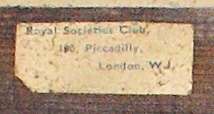 Royal Societies Club,
100, Piccadilly,
London, W.1.